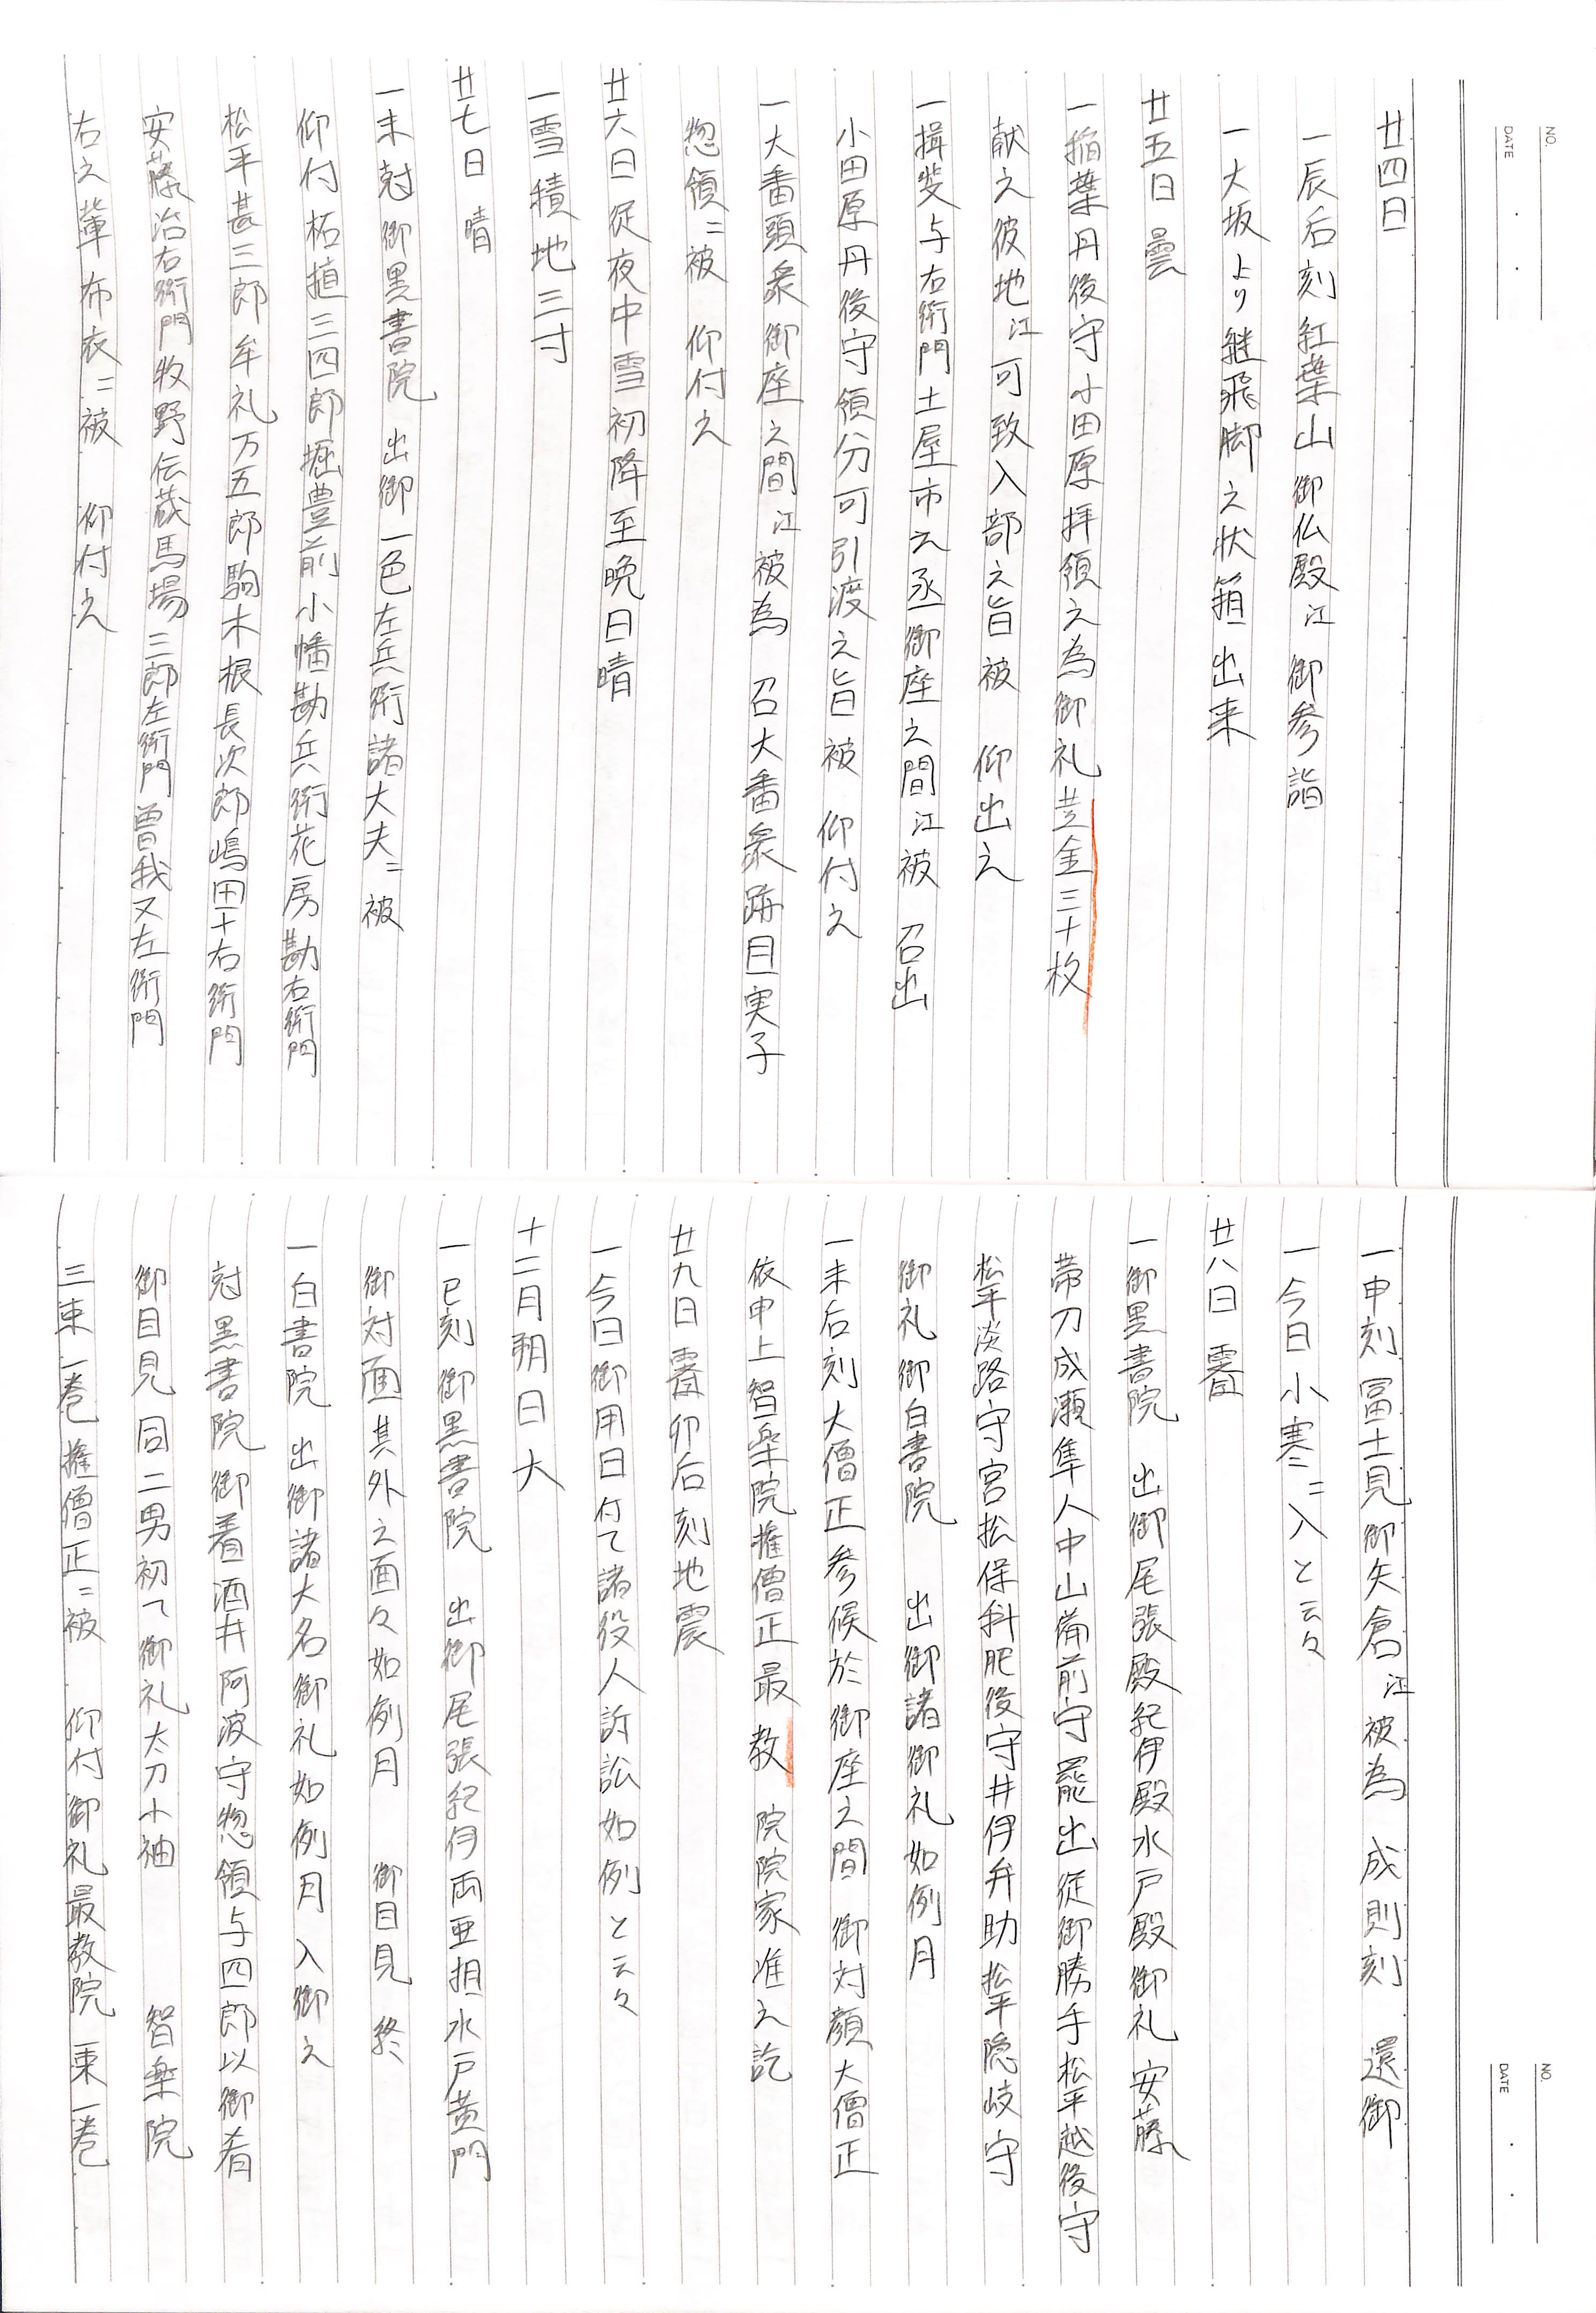 NO.
DATE
廿四日
一辰后刻紅葉山御仏殿江御参詣
一大坂より継飛脚之状箱出来
廿五日 曇
一稲葉丹後守小田原拝領之為御礼黄金三十枚
献之彼地江可致入部之旨被 仰出之
一揖斐与右衛門土屋市之丞御座之間江被 召出
小田原丹後守領分可引渡之旨被 仰付之
一大番頭衆御座之間江被為 召大番衆跡目実子
惣領ニ被 仰付之
廿六日従夜中雪初降至晩日晴
一雪積地三寸
廿七日 晴
一未尅御黒書院 出御一色左兵衛諸大夫ニ被
仰付柘植三四郎堀豊前小幡勘兵衛花房勘右衛門
松平甚三郎牟礼万五郎駒木根長次郎嶋田十右衛門
安藤治右衛門牧野伝蔵馬場三郎左衛門曽我又左衛門
右之輩布衣ニ被 仰付之
NO.
DATE
一申刻冨士見御矢倉江被為 成則刻 還御
一今日小寒ニ入と云々
廿八日 霽
一御黒書院 出御尾張殿紀伊殿水戸殿御礼 安藤
帯刀成瀬隼人中山備前守罷出従御勝手松平越後守
松平淡路守宮松保科肥後守井伊弁助松平隠岐守
御礼御白書院 出御諸御礼如例月
一未后刻大僧正参候於御座之間 御対顔大僧正
依申上智楽院権僧正最教 院院家准之訖
廿九日 霽卯后刻地震
一今日御用日付て諸役人訴訟如例と云々
十二月朔日大
一巳刻御黒書院 出御尾張紀伊両亜相水戸黄門
御対面其外之面々如例月 御目見 終
一白書院 出御諸大名御礼如例月 入御之
尅黒書院御着酒井阿波守惣領与四郎以御肴
御目見同二男初て御礼太刀小袖 智楽院
三束一巻権僧正ニ被 仰付御礼最教院一束一巻